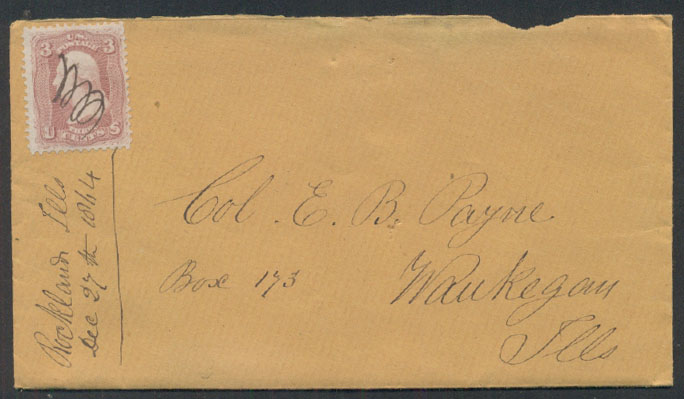 3 U.S. POSTAGE 3
U S
Rockland Ills
Dec 27th 1864
Col. E. B. Payne
Box 173
Waukegan
Ills